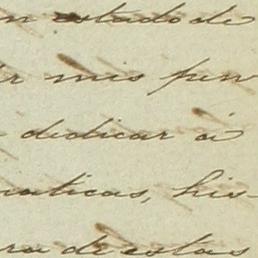 n estado de
ir mis pen
dedicar á
maticas, his-
ra de estas